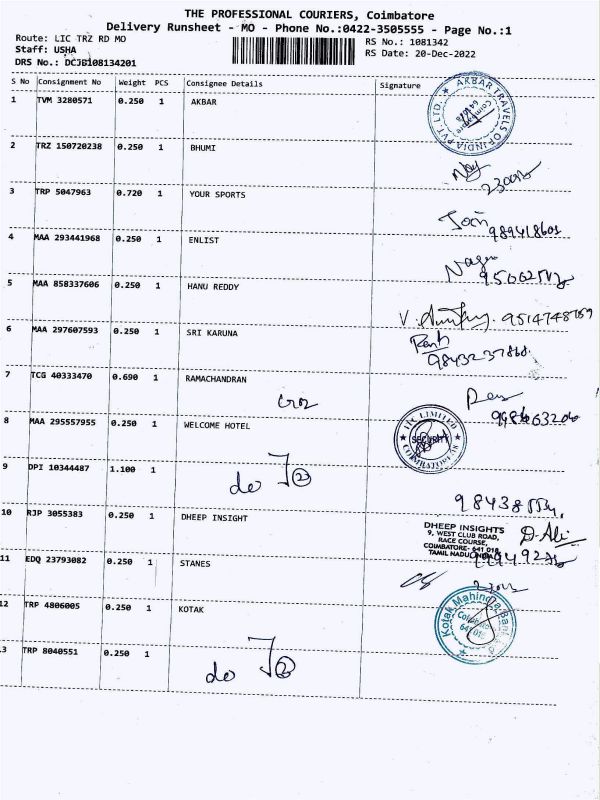 THE PROFESSIONAL COURIERS, Coimbatore
Delivery Runsheet - MO - Phone No.:0422-3505555 - Page No.:1
Route: LIC TRZ RD MO
RS No.: 1081342
Staff: USHA
RS Date: 20-Dec-2022
DRS No.: DCJB108134201
S No Consignment No Weight PCS Consignee Details Signature
1 TVM 3280571 0.250 1 AKBAR
AKBAR TRAVELS OF INDIA PVT. LTD.
Coimbatore
2 TRZ 150720238 0.250 1 BHUMI
3 TRP 5047963 0.720 1 YOUR SPORTS
4 MAA 293441968 0.250 1 ENLIST
5 MAA 858337606 0.250 1 HANU REDDY
6 MAA 297607593 0.250 1 SRI KARUNA
9843237868
7 TCG 40333470 0.690 1 RAMACHANDRAN
8 MAA 295557955 0.250 1 WELCOME HOTEL
LIMITED
SECURITY
COIMBATORE-18
9 DPI 10344487 1.100 1
do
10 RJP 3055383 0.250 1 DHEEP INSIGHT
DHEEP INSIGHTS
9, WEST CLUB ROAD,
RACE COURSE,
COIMBATORE- 641 018,
TAMIL NADU, INDIA
D. Ali
11 EDQ 23793082 0.250 1 STANES
12 TRP 4806005 0.250 1 KOTAK
Kotak Mahindra Bank Ltd
641 018
3 TRP 8040551 0.250 1
do